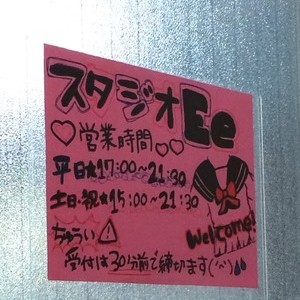 スタジオEe
♡営業時間♡♡
平日★17:00〜21:30
土日・祝★15:00〜21:30
ちゅうい⚠
受付は30分前で締切ます(^^)
Welcome!